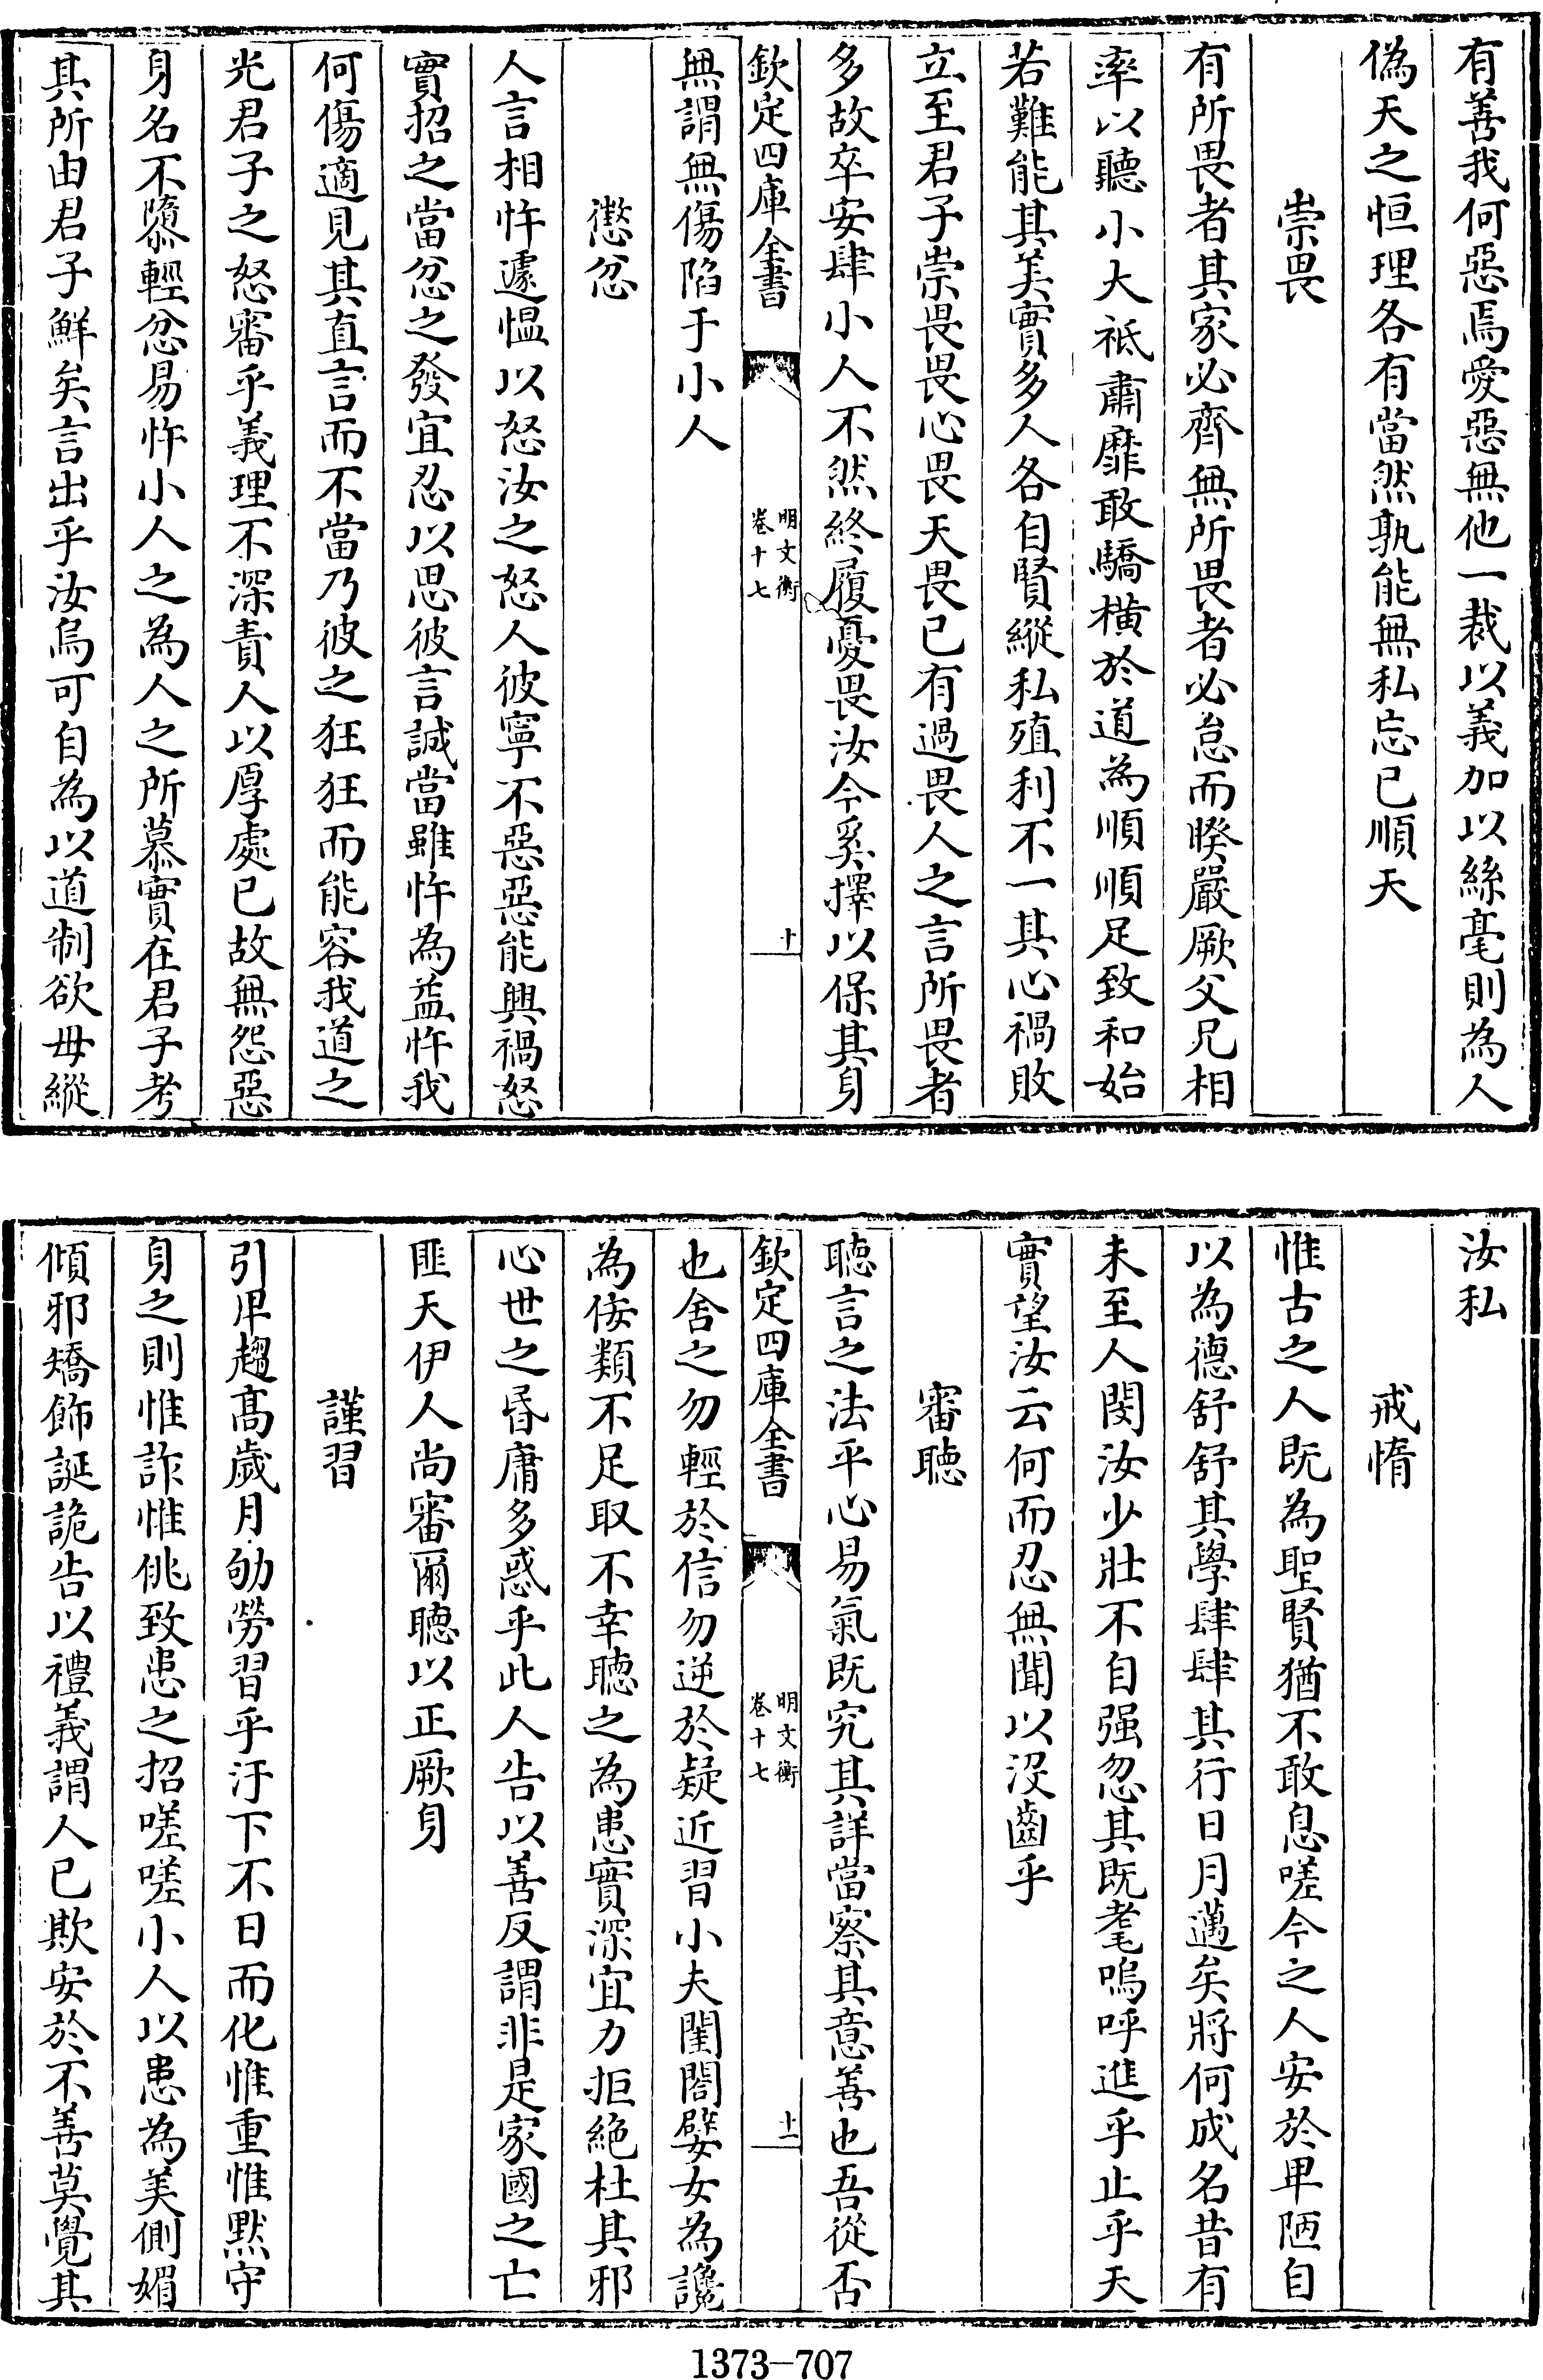 有善我何惡焉愛惡無他一裁以義加以絲毫則為人
偽天之恒理各有當然孰能無私忘已順天
崇畏
有所畏者其家必齊無所畏者必怠而暌嚴厥父兄相
率以聽小大祗肅靡敢驕橫於道為順順足致和始
若難能其美實多人各自賢縱私殖利不一其心禍敗
立至君子崇畏畏心畏天畏已有過畏人之言所畏者
多故卒安肆小人不然終履憂畏汝今奚擇以保其身
欽定四庫全書
明文衡
卷十七
十
無謂無傷陷于小人
懲忿
人言相忤遽愠以怒汝之怒人彼寧不惡惡能興禍怒
實招之當忿之發宜忍以思彼言誠當雖忤為益忤我
何傷適見其直言而不當乃彼之狂狂而能容我道之
光君子之怒審乎義理不深責人以厚處已故無怨惡
身名不隳輕忿易忤小人之為人之所慕實在君子考
其所由君子鮮矣言出乎汝烏可自為以道制欲毋縱
汝私
戒惰
惟古之人既為聖賢猶不敢息嗟今之人安於卑陋自
以為德舒舒其學肆肆其行日月邁矣將何成名昔有
未至人閔汝少壯不自强忽其既耄嗚呼進乎止乎天
實望汝云何而忍無聞以沒齒乎
審聽
聽言之法平心易氣既究其詳當察其意善也吾從否
欽定四庫全書
明文衡
卷十七
十一
也舍之勿輕於信勿逆於疑近習小夫閨閤嬖女為讒
為佞類不足取不幸聽之為患實深宜力拒絕杜其邪
心世之昏庸多惑乎此人告以善反謂非是家國之亡
匪天伊人尚審爾聽以正厥身
謹習
引卑趨髙歲月劬勞習乎汙下不日而化惟重惟默守
身之則惟詐惟佻致患之招嗟嗟小人以患為美側媚
傾邪矯飾誕詭告以禮義謂人已欺安於不善莫覺其
1373-707